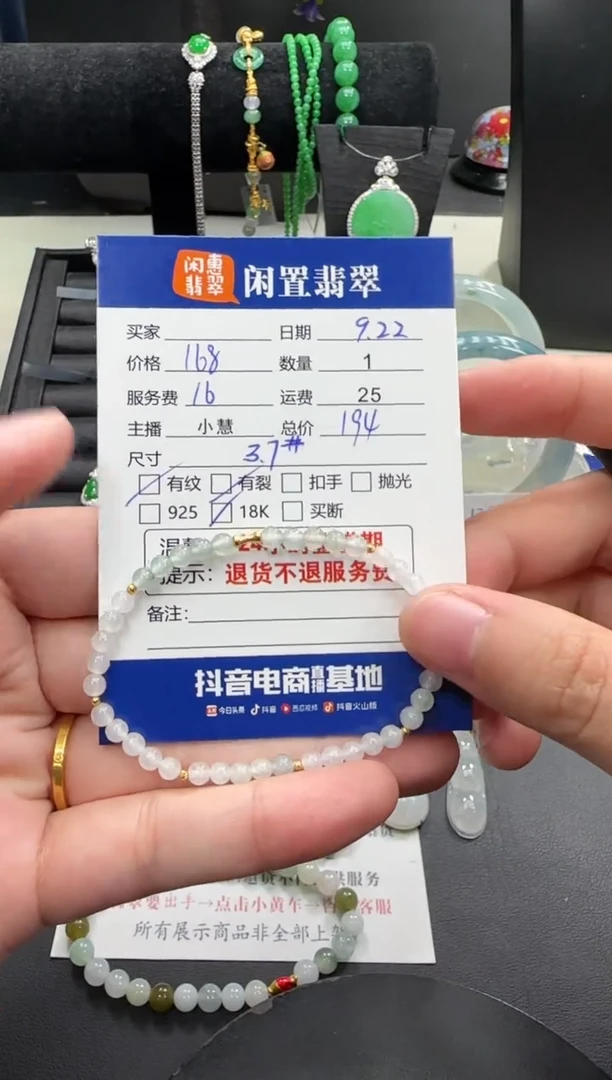 闲惠
翡翠
闲置翡翠
买家 日期 9.22
价格 168 数量 1
服务费 16 运费 25
主播 小慧 总价 194
尺寸 3.7#
有纹 有裂 扣手 抛光
925 18K 买断
提示: 退货不退服务费
备注:
抖音电商直播基地
今日头条 抖音 西瓜视频 抖音火山版
服务
出手→点击小黄车→ 客服
所有展示商品非全部上